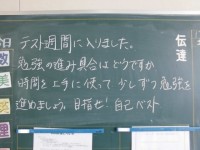 テスト週間に入りました。
勉強の進み具合はどうですか
時間を上手に使って少しずつ勉強を
進めましょう。目指せ!自己ベスト
伝達
日
数
美
理